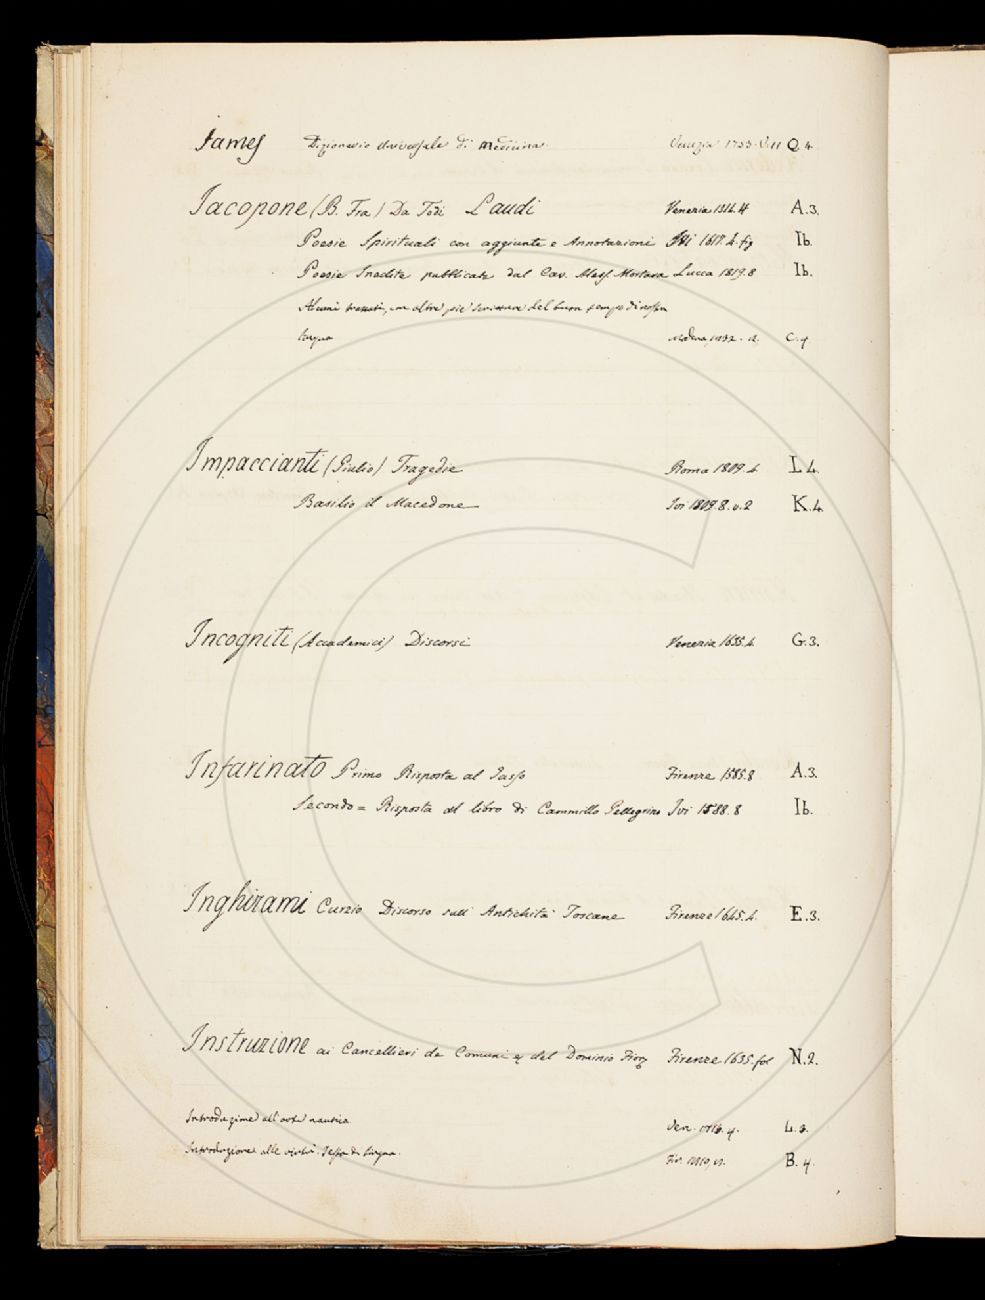 James Dizionario universale di Medicina. Venezia 1753. v. 11 Q.4
Jacopone (B. Fra) Da Todi Laudi Venezia 1514.4 A.3.
Poesie Spirituali con aggiunte e Annotazioni Ivi 1617.4. fig Ib.
Poesie Inedite pubblicate dal Cav. Aless. Mortara Lucca 1819.8 Ib.
Alcuni trattati, con altre più scritture del buon tempo di nostra
lingua Modena, 1832. C. 4
Impaccianti (Giulio) Tragedie Roma 1809.4 L4.
Basilio il Macedone Ivi 1809.8.v.2 K.4
Incogniti (Accademici) Discorsi Venezia 1635.4. G.3.
Infarinato Primo Risposta al Tasso Firenze 1585.8 A.3.
Secondo = Risposta al libro di Cammillo Pellegrino Ivi 1588.8 Ib.
Inghirami Curzio Discorso sull' Antichità Toscane Firenze 1645.4. E.3.
Instruzione ai Cancellieri de Comuni del Dominio Firenze 1635.fol N.2.
Introduzione all'arte nautica Ven. 4. L.3.
Introduzione alle virtù. Testo di lingua. Fir. B. 4.